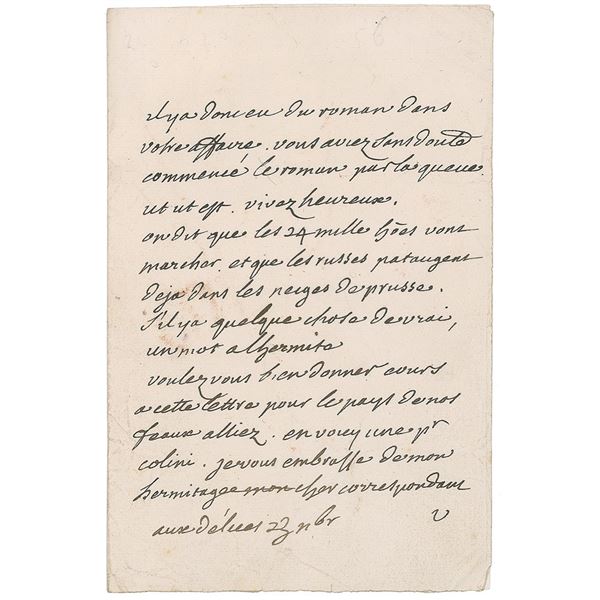 il ya donc eu du roman dans
votre affaire. vous aviez sans doute
commencé le roman par la queue.
ut ut est. vivez heureux.
on dit que les 24 mille hoes vont
marcher. et que les russes pataugent
deja dans les neiges de prusse.
s'il ya quelque chose de vrai,
un mot a lhermite
voulez vous bien donner cours
a cette lettre pour le pays de nos
feaux alliez. en voicy une pr
colini. je vous embrasse de mon
hermitage mon cher correspondant
aux délices 23 nbr v